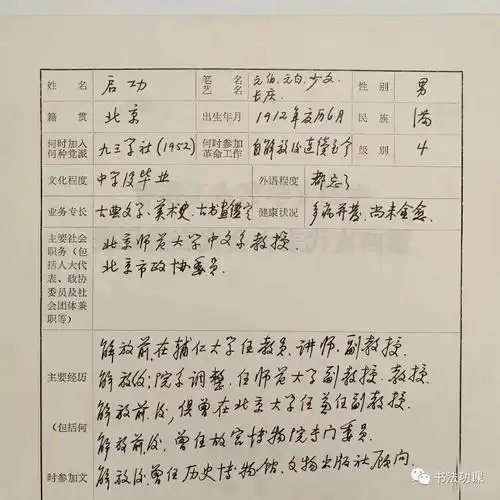 姓名 启功 笔名艺名 元伯.元白.少文.长庆. 性别 男
籍贯 北京 出生年月 1912年农历6月 民族 满
何时加入何种党派 九三学社(1952) 何时参加革命工作 自解放后连续至今 级别 4
文化程度 中学没毕业 外语程度 都忘了
业务专长 古典文学、美术史、古书画鉴定 健康状况 多病并发,尚未全愈.
主要社会职务(包括人大代表、政协委员及社会团体兼职等) 北京师范大学中文系教授.
北京市政协委员.
主要经历
(包括何
时参加文
解放前,在辅仁大学任教员、讲师、副教授.
解放后;院系调整,任师范大学副教授、教授.
解放前后,俱曾在北京大学任兼任副教授.
解放前后,曾任故宫博物院专门委员.
解放后,曾任历史博物馆、文物出版社顾问.
书法功课